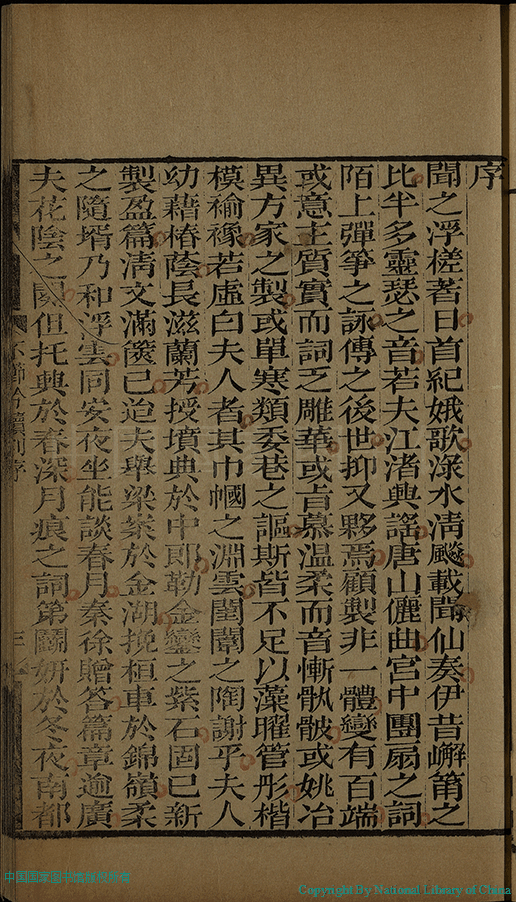 序
聞之浮槎著曰首紀娥歌渌水淸飈載聞仙奏伊昔嶰筩之
比半多靈瑟之音若夫江渚興謠唐山儷曲宮中團扇之詞
陌上彈箏之詠傳之後世抑又夥焉顧製非一體變有百端
或意主質實而詞乏雕華或旨慕溫柔而音慚骩骳或姚冶
異方家之製或單寒類委巷之謳斯皆不足以藻曜管彤楷
模褕褖若虛白夫人者其巾幗之淵雲閨闈之陶謝乎夫人
幼藉椿蔭長滋蘭芳授墳典於中郎勒金鑾之紫石固已新
製盈篇淸文滿篋已迨夫舉梁案於金湖挽桓車於錦嶺柔
之隨壻乃和浮雲同安夜坐能談春月秦徐贈答篇章逾廣
夫花陰之闋但托興於春深月痕之詞第鬭妍於冬夜南都
不節合續刊序
三
中国国家图书馆
Copyright by National Library of China